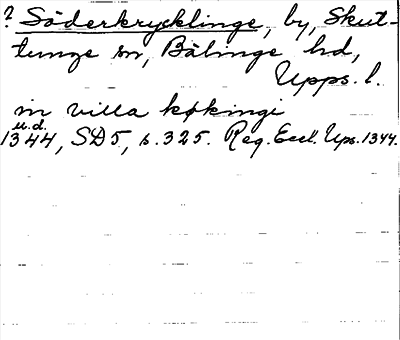 ? Söderkrycklinge, by, Skut-
tunge sn, Bälinge hd,
Upps. l.
in villa køkingi
u.d.
1344, SD5, s. 325. Reg. Eccl. Ups. 1344.